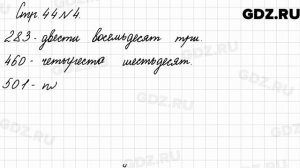 GDZ.RU
Стр. 44 № 4.
283 - двести восемьдесят три.
460 - четыреста шестьдесят.
501 - п